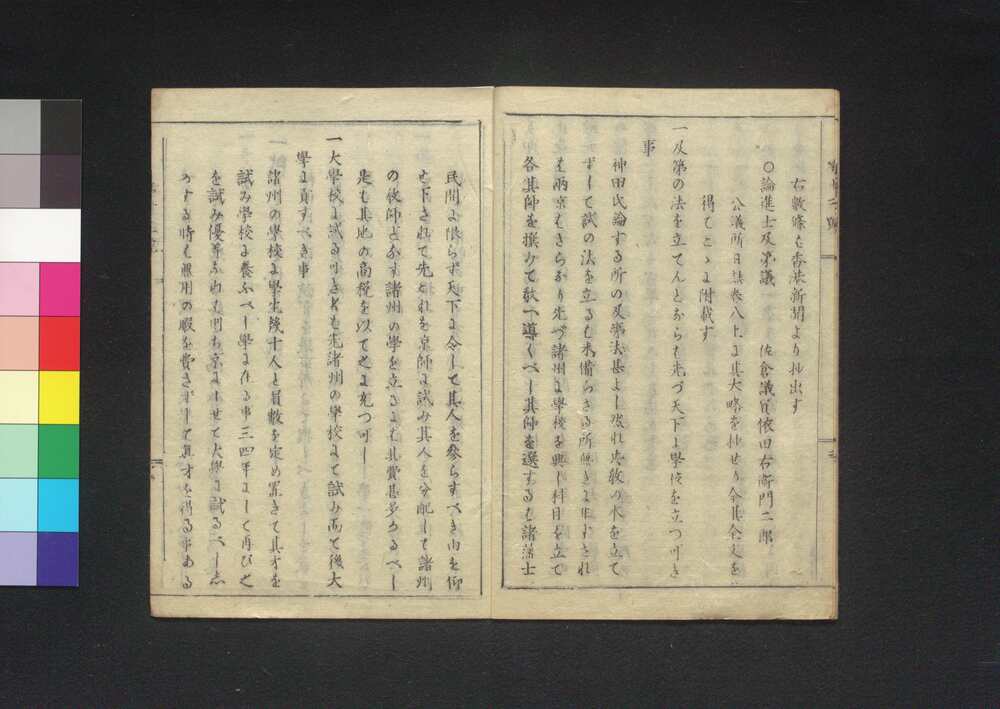 右數條も香港新聞より抄出す
○論進士及第議 佐倉議員依田右衛門二郎
公議所日誌卷八上に其大略を抄せり今其全文を
得てこゝに附載す
一及第の法を立てんとならも先づ天下に學校を立つ可き
事
神田氏論する所の及第法甚よし然れ共教の本を立て
ずして試の法を立るも未備らざる所無きに非ずされ
も兩京もさらなり先づ諸州に學校を興し科目を立て
各其師を撰みて教へ導くべし其師を選するも諸藩士
民間に限らず天下に令して其人を參らすべき由を仰
せ下されて先これを京師に試み其人を分配して諸州
の教師となす諸州の學を立るにも其費甚多かるべし
是も其地の高税を以て之に充つ可し
一大學校に試る可き者も先諸州の學校にて試み而て後大
學に貢すべき事
諸州の學校に學生幾十人と員數を定め置きて其才を
試み學校に養ふべし學に在る事三四年にして再び之
を試み優等なる者も則ち京によせて大學に試るべし
する時も無用の暇を費さずして眞才を得る事ある